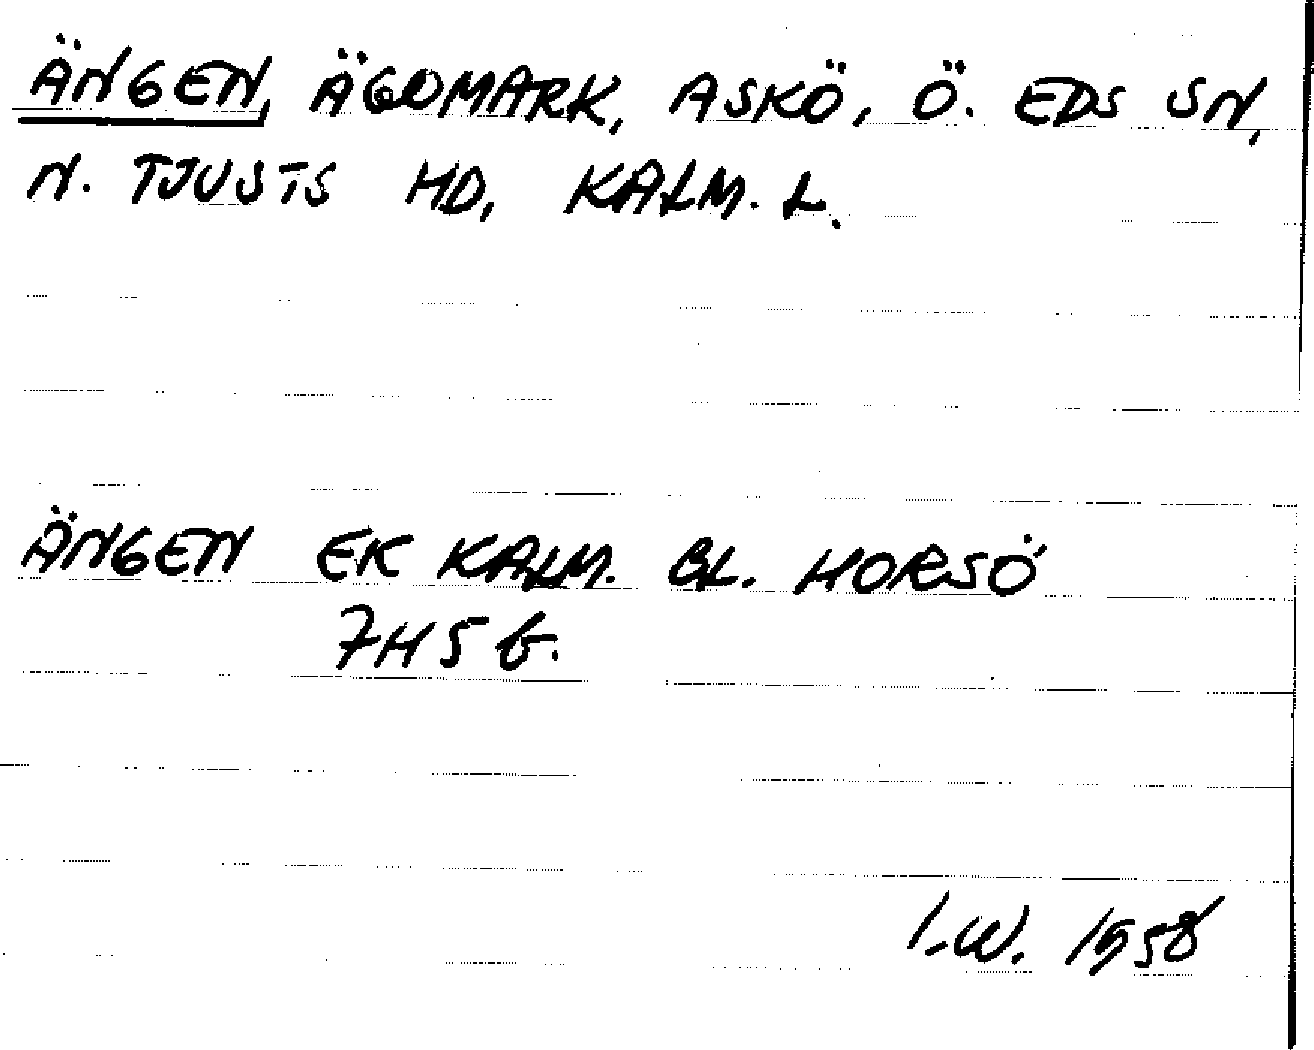 ÄNGEN, ÄGOMARK, ASKÖ, Ö. EDS SN,
N. TJUSTS HD, KALM. L.
ÄNGEN EK KALM. BL. HORSÖ
7H5b.
I.W. 1958